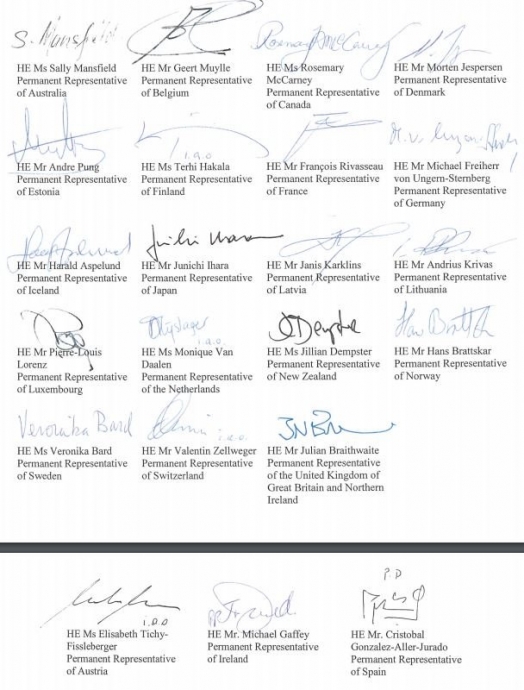 S. Mansfield
Rosemary McCarney
HE Ms Sally Mansfield
Permanent Representative
of Australia
HE Mr Geert Muylle
Permanent Representative
of Belgium
HE Ms Rosemary
McCarney
Permanent Representative
of Canada
HE Mr Morten Jespersen
Permanent Representative
of Denmark
i.a.o
HE Mr Andre Pung
Permanent Representative
of Estonia
HE Ms Terhi Hakala
Permanent Representative
of Finland
HE Mr François Rivasseau
Permanent Representative
of France
HE Mr Michael Freiherr
von Ungern-Sternberg
Permanent Representative
of Germany
HE Mr Harald Aspelund
Permanent Representative
of Iceland
HE Mr Junichi Ihara
Permanent Representative
of Japan
HE Mr Janis Karklins
Permanent Representative
of Latvia
HE Mr Andrius Krivas
Permanent Representative
of Lithuania
JDempster
Hans Brattskar
i.a.o.
HE Mr Pierre-Louis
Lorenz
Permanent Representative
of Luxembourg
HE Ms Monique Van
Daalen
Permanent Representative
of the Netherlands
HE Ms Jillian Dempster
Permanent Representative
of New Zealand
HE Mr Hans Brattskar
Permanent Representative
of Norway
Veronika Bard
i.a.o.
HE Ms Veronika Bard
Permanent Representative
of Sweden
HE Mr Valentin Zellweger
Permanent Representative
of Switzerland
HE Mr Julian Braithwaite
Permanent Representative
of the United Kingdom of
Great Britain and Northern
Ireland
P.D
i.a.o
HE Ms Elisabeth Tichy-
Fissleberger
Permanent Representative
of Austria
HE Mr. Michael Gaffey
Permanent Representative
of Ireland
HE Mr. Cristobal
Gonzalez-Aller-Jurado
Permanent Representative
of Spain